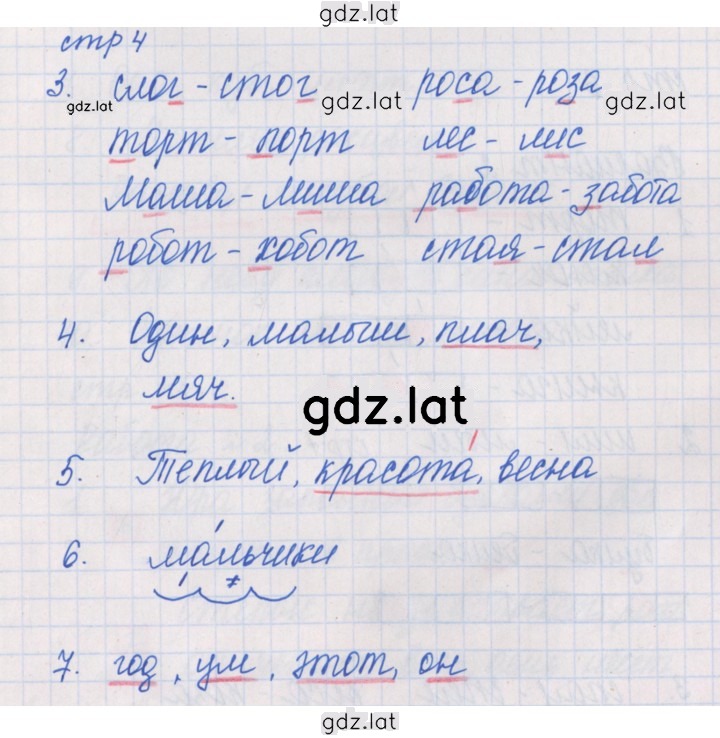 gdz.lat
стр 4
3. слог - стог роса - роза
gdz.lat gdz.lat gdz.lat
торт - порт лес - лис
Маша - Миша работа - забота
робот - хобот стая - стал
4. Один, малыш, плач,
мяч.
gdz.lat
5. Теплый, красота, весна
6. мальчики
7. год, ум, этот, он
gdz.lat